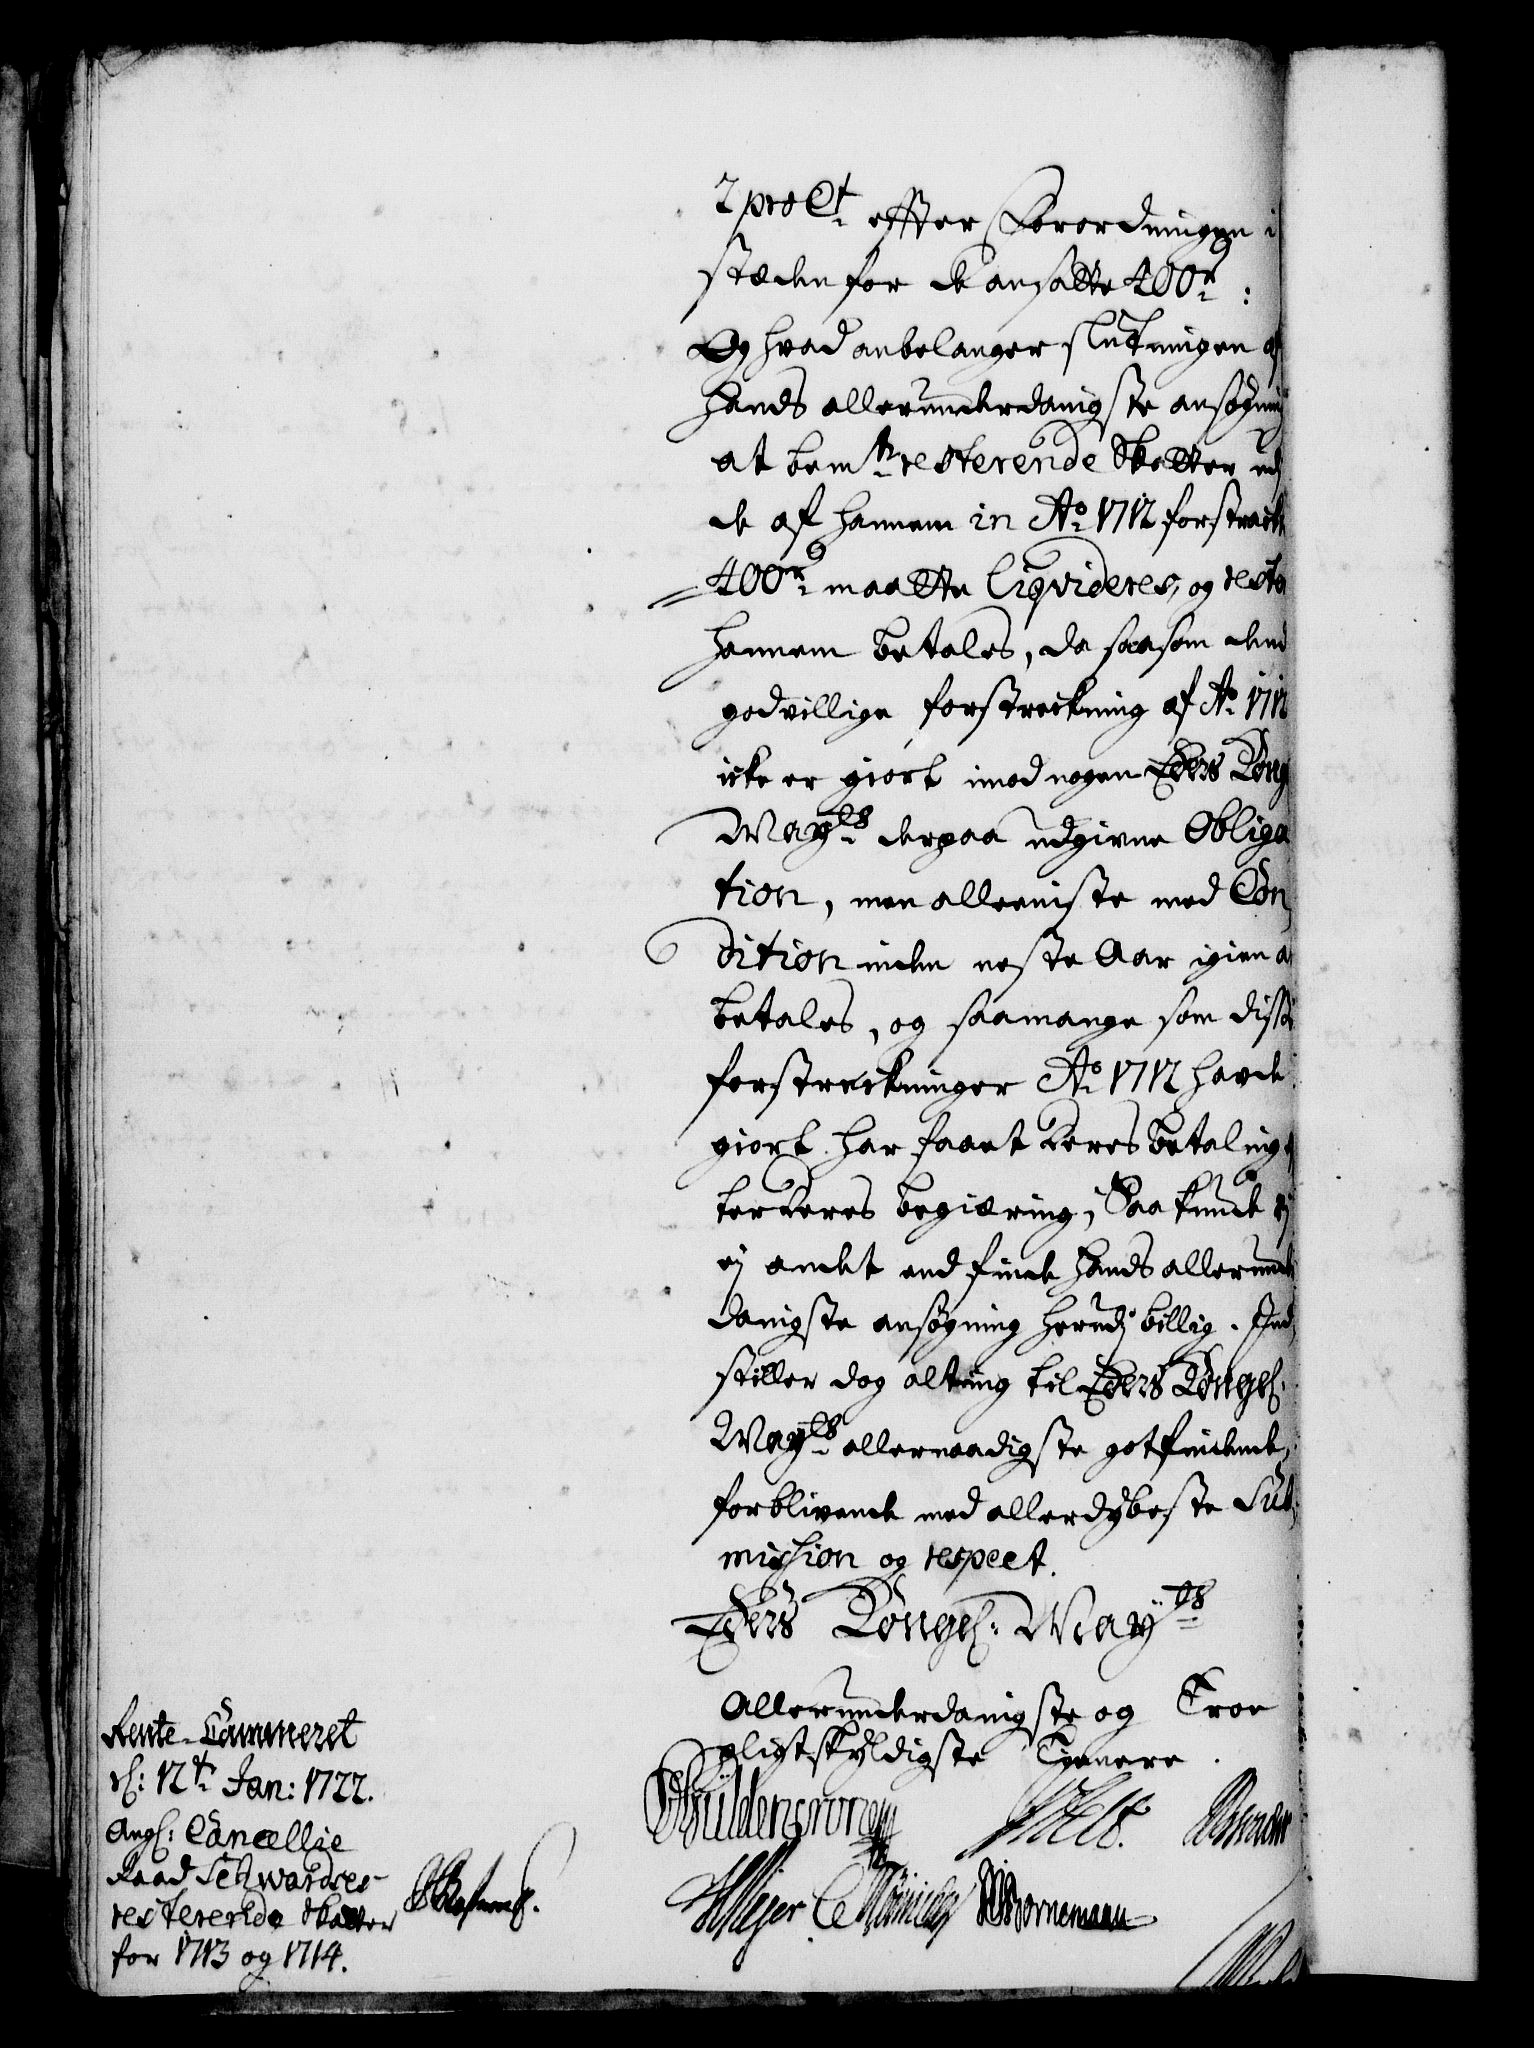 2 pro Ct effter Forordningen i
stæden for de ansatte 400 r:
Og hvad anbelanger slutningen af
hands allerunderdanigste ansøgning
at bemte resterende Skatter udj
de af hannem in Ao 1712 forstrackte
400 r maatte liqvideres, og resten
hannem betales, da saasom dend
godvillige forstreckning af Ao 1712
icke er giort imod nogen Eders Kongl
Mayts derpaa udgivne Obliga
tion, men alleeniste med Con
dition inden neste Aar igien at
betales, og saamange som disse
forstreckninger Ao 1712 havde
giort har faaet deres betaling ef
ter deres begiæring, Saa kunde vj
ej andet end finde hands allerunder
danigste ansøgning herudj billig. Ind
stiller dog alting til Eders Kongel:
Mayts allernaadigste gotfindende,
forblivende med allerdybeste Sub
mission og respect.
Eders Kongel: Mayts
Allerunderdanigste og Troe
pligtskyldigste Tienere.
Gÿldencrone
HMejer
Bornemann
Rente-Cammeret
d: 12t Jan: 1722.
Angl: Cancellie
Raad Schwartzes
resterende Skatter
for 1713 og 1714.